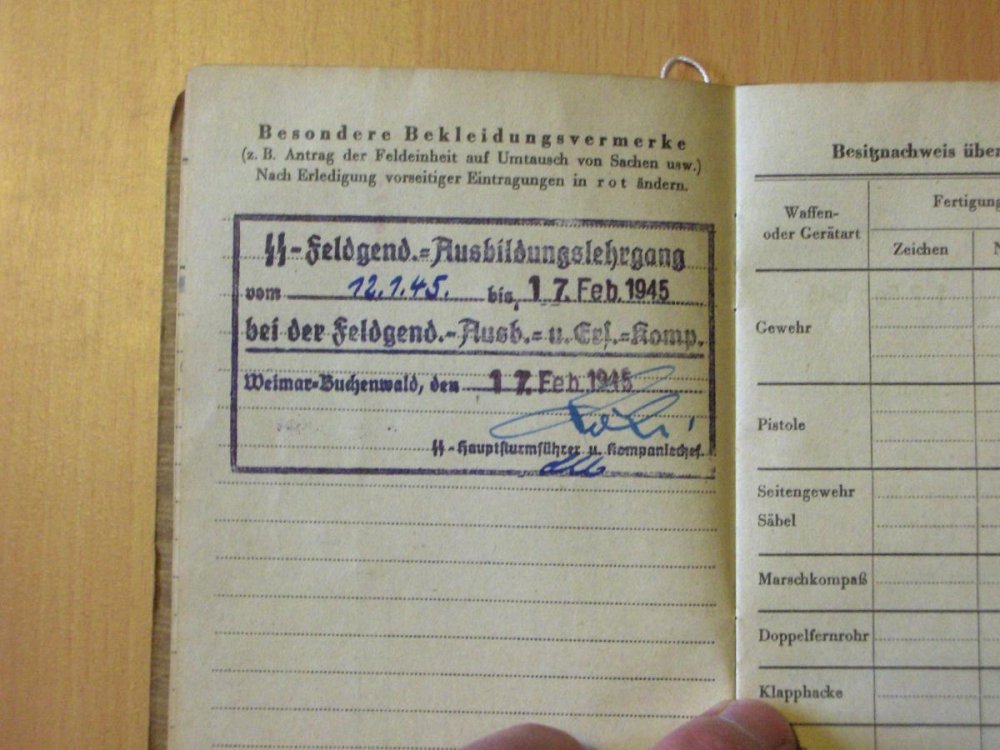 Besondere Bekleidungsvermerke
(z. B. Antrag der Feldeinheit auf Umtausch von Sachen usw.)
Nach Erledigung vorseitiger Eintragungen in rot ändern.
SS-Feldgend.-Ausbildungslehrgang
vom 12.1.45. bis 17. Feb. 1945
bei der Feldgend.-Ausb.- u. Ers.-Komp.
Weimar-Buchenwald, den 17. Feb 1945
SS-Hauptsturmführer u. Kompaniechef.
Besitznachweis über
Waffen-
oder Gerätart
Fertigung
Zeichen
N
Gewehr
Pistole
Seitengewehr
Säbel
Marschkompaß
Doppelfernrohr
Klapphacke